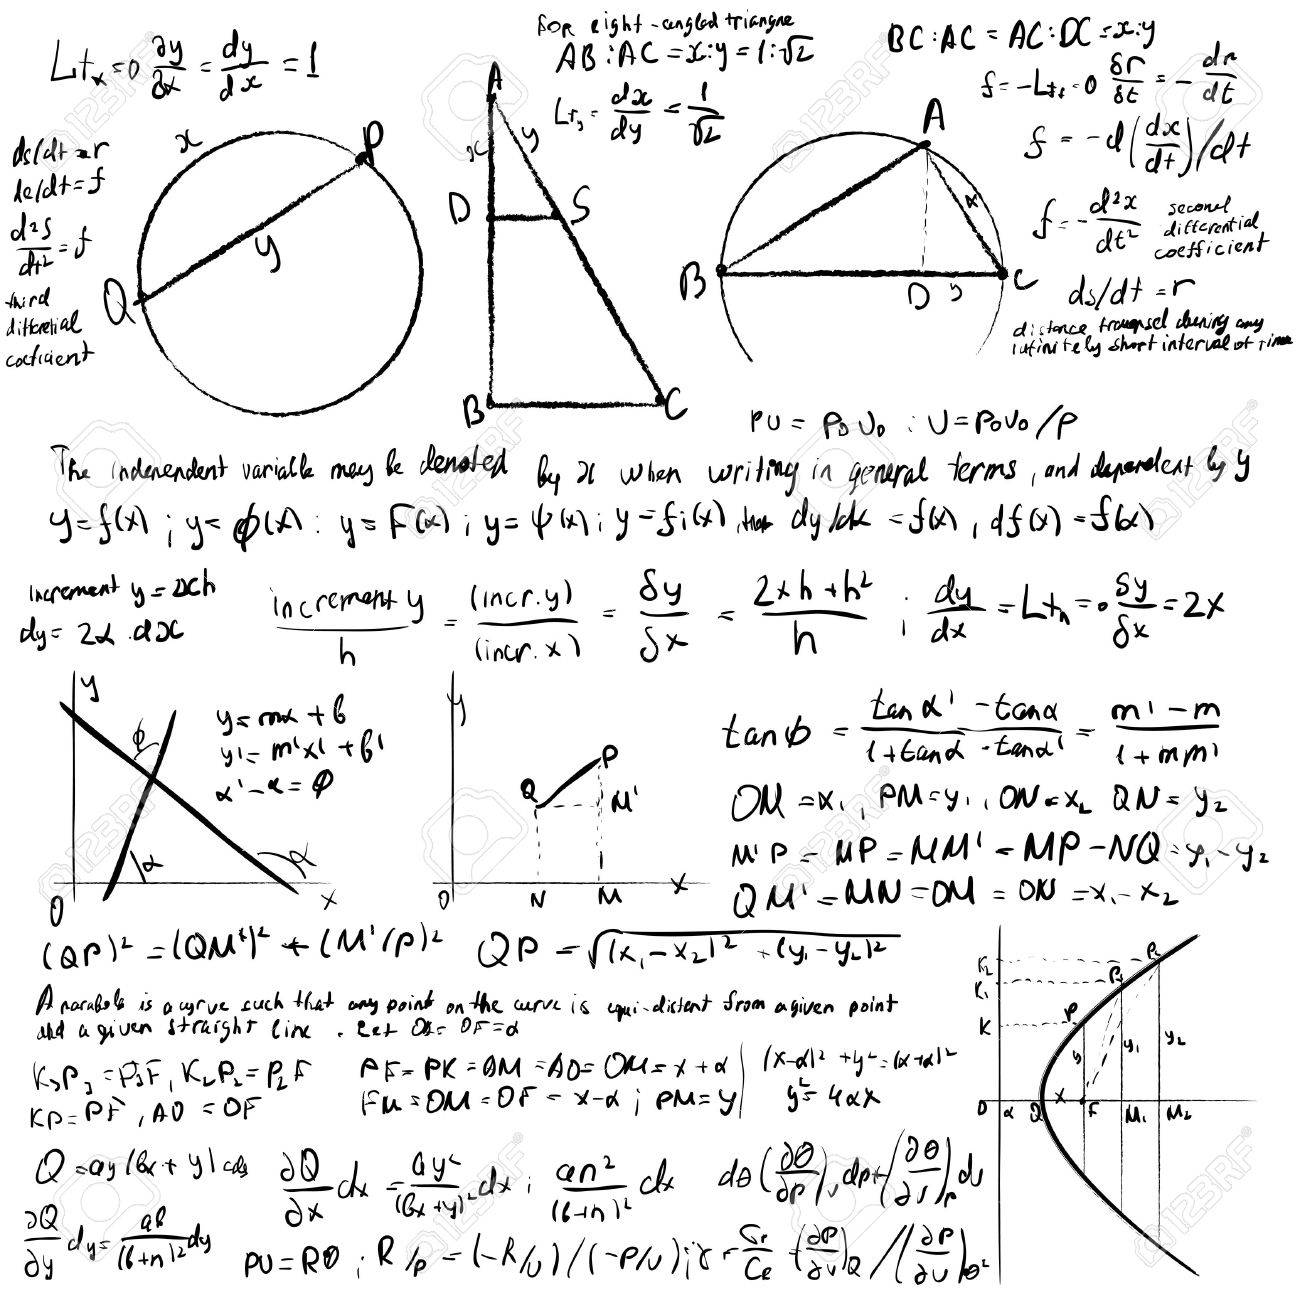 Lt x=0 ∂y/∂x = dy/dx = 1
x
P
y
Q
ds/dt = r
de/dt = f
d²s/dt² = f
third
differential
coeficient
FOR right-angled triangne
AB : AC = x : y = 1 : √2
Lt y = dx/dy = 1/√2
A
x
y
D
S
B
C
BC : AC = AC : DC = x : y
f = -Lt t=0 δr/δt = - dr/dt
f = -d(dx/dt)/dt
f = - d²x/dt²
second
differential
coefficient
ds/dt = r
distance during any
infinitely short interval of time
A
x
B
D
y
C
PU = P₀U₀ : U = P₀U₀/P
The independent variable may be denoted by x when writing in general terms, and dependent by y
y=f(x) ; y= φ(x) : y = F(x) ; y= ψ(x) ; y=fi(x), that dy/dx = f(x), df(x) = f(x)
increment y = 2xh
dy = 2x . dx
increment y / h = (incr. y)/(incr. x) = δy/δx = 2xh + h²/h ; dy/dx = Lt h=0 δy/δx = 2x
y
φ
α
α
O
x
y = mx + b
y' = m'x' + b'
α' - α = φ
y
Q
P
M'
O
N
M
x
tan φ = tan α' - tan α / 1 + tan α · tan α' = m' - m / 1 + mm'
OM = x₁, PM = y₁, ON = x₂ QN = y₂
M'P = MP = MM' = MP - NQ = y₁ - y₂
QM' = MN = OM = ON = x₁ - x₂
(QP)² = (QM')² + (M'/P)² QP = √(x₁ - x₂)² + (y₁ - y₂)²
A parabola is a curve such that any point on the curve is equi-distant from a given point
and a given straight line . Let OF = α
K₃P₃ = P₃F, K₂P₂ = P₂F
KP = PF, AO = OF
PF = PK = OM = AO = OM = x + α
FM = OM = OF = x - α ; PM = y
(x-α)² + y² = (x+α)²
y² = 4αx
K₂
K₁
K
P
P₁
P₂
y
y₁
y₂
O
α
Q
x
F
M₁
M₂
Q = ay/(bx + y)
∂Q/∂x dx = ay²/(bx+y)² dx ; an²/(b+n)² dx
dθ (∂θ/∂p)v dp + (∂θ/∂v)p dv
∂Q/∂y dy = ab/(b+n)² dy
PU = Rθ ; R/p = (-R/v)/(-P/v) ; γ = (∂P/∂v)Q / (∂P/∂v)θ²